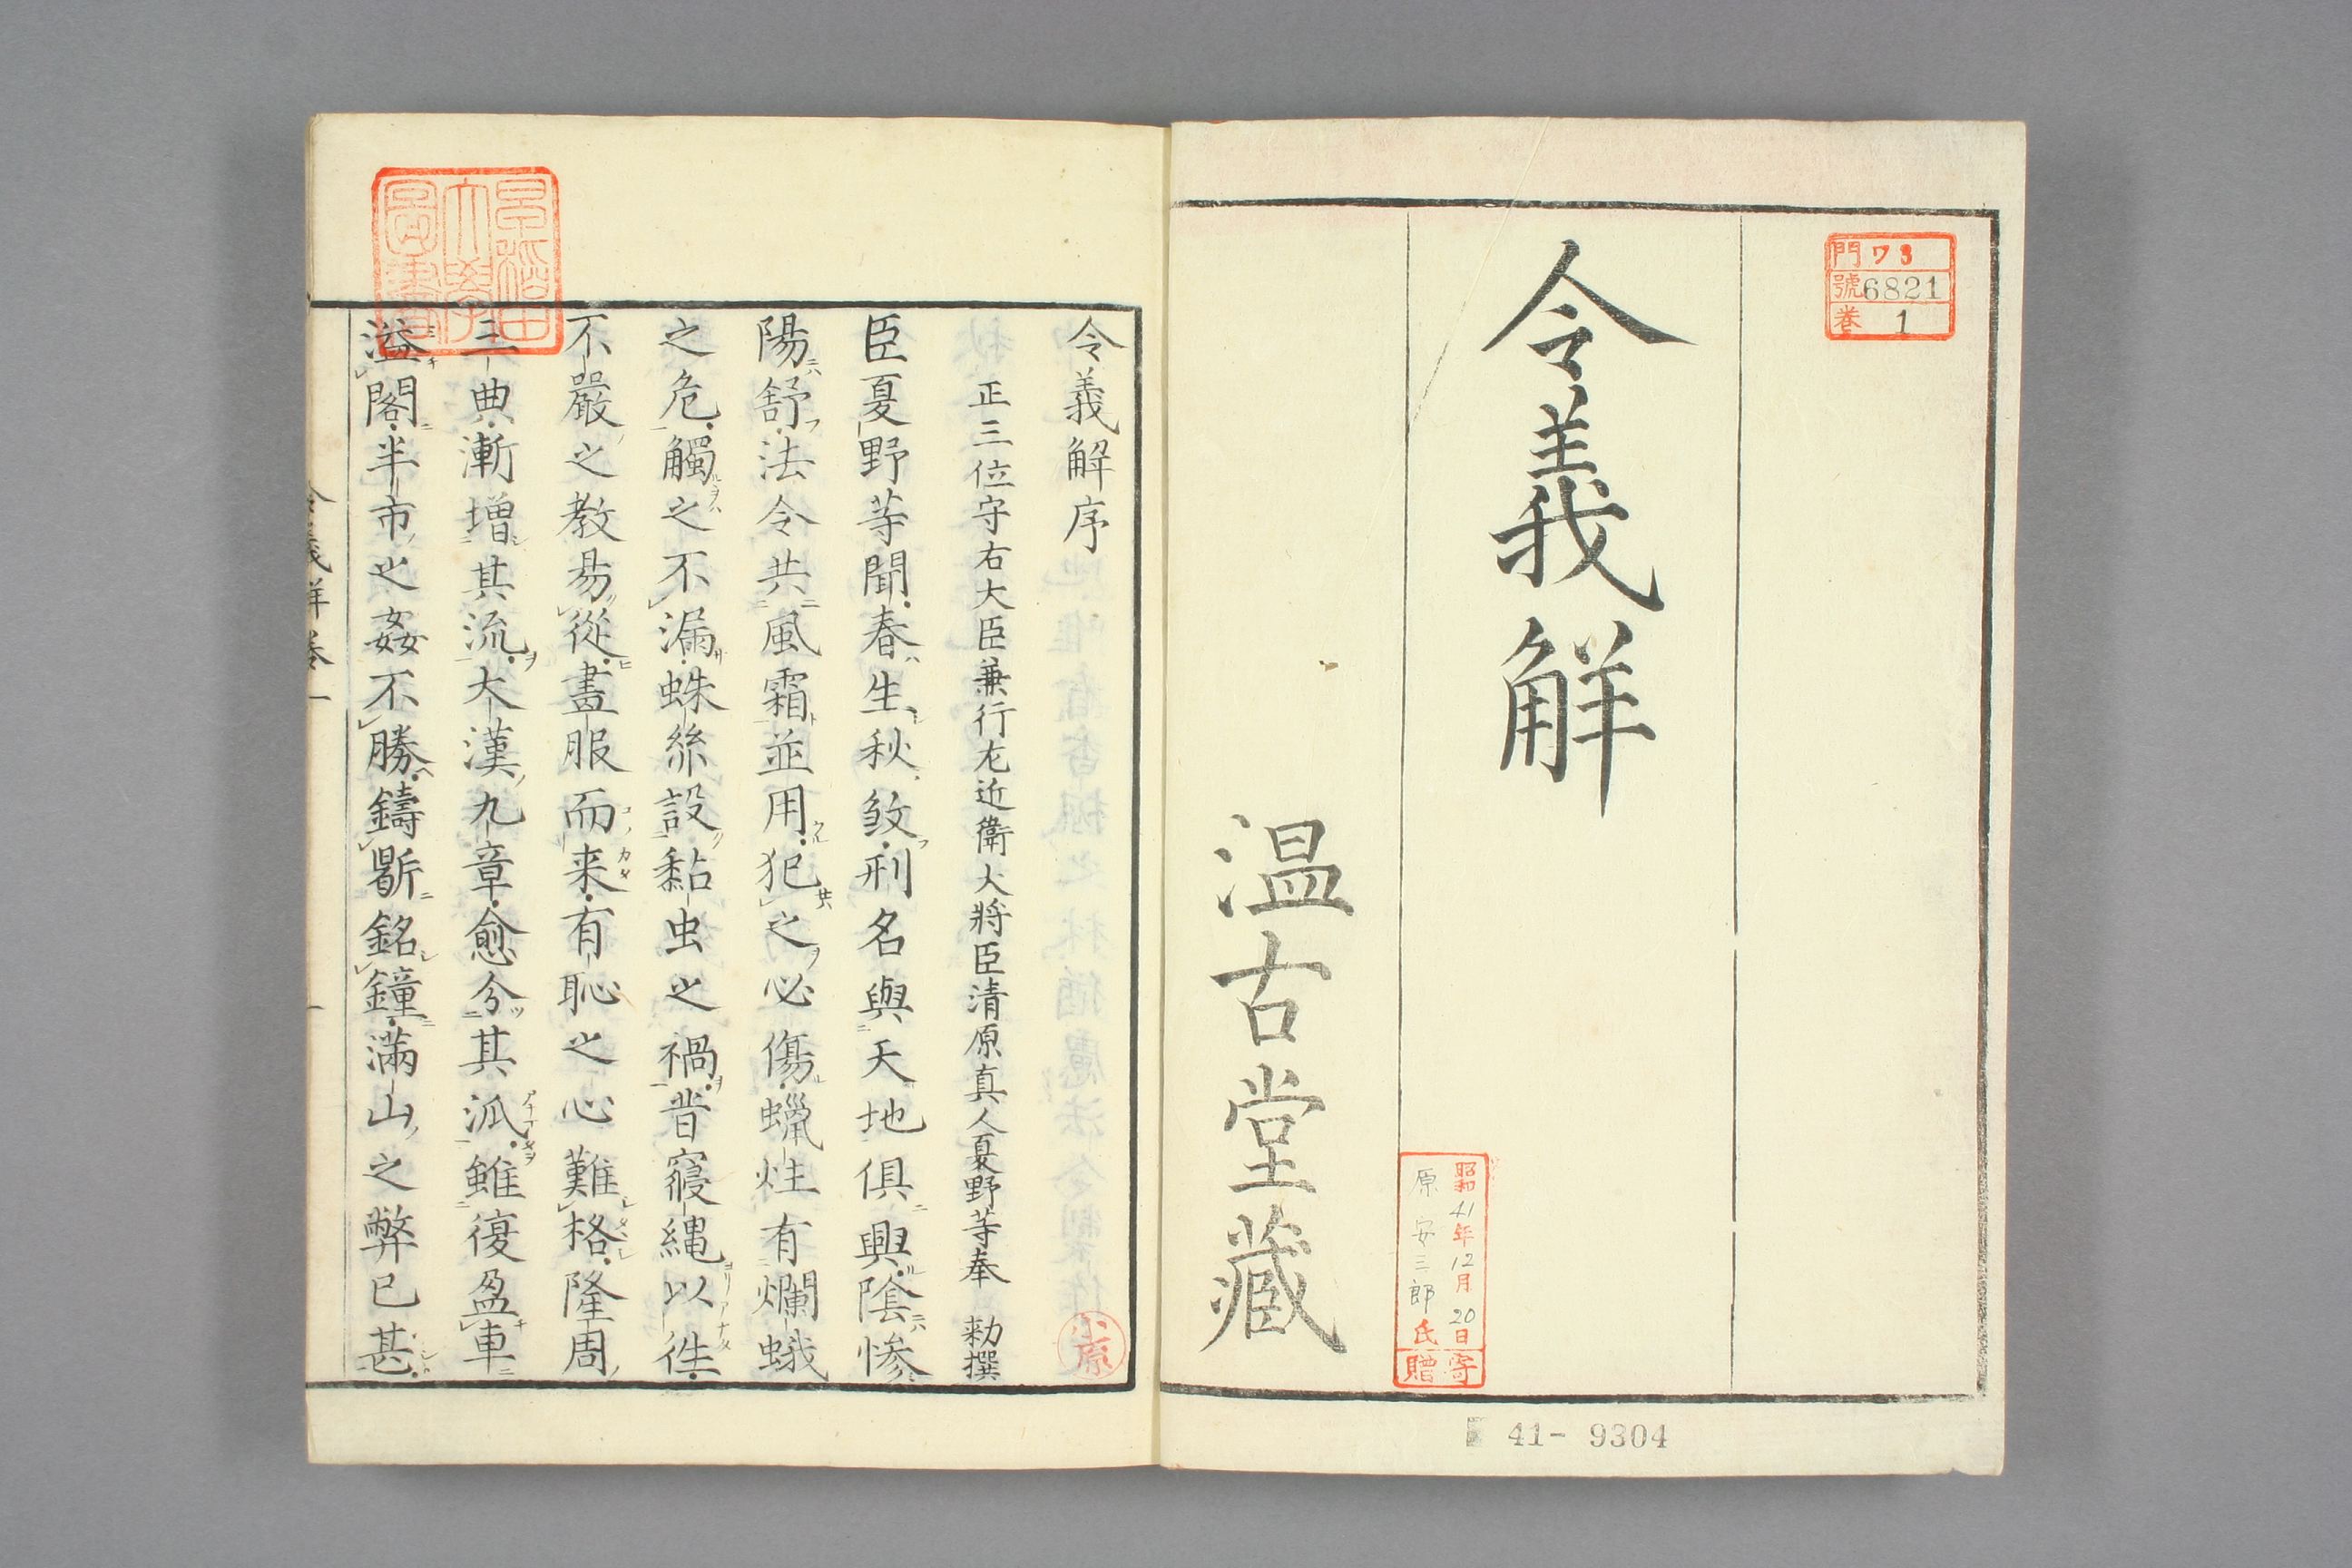 門 ワ3
號 6821
卷 1
令義解
溫古堂藏
昭和41年12月20日
原安三郎氏
寄贈
41- 9304
令義解序
正三位守右大臣兼行左近衛大將臣清原真人夏野等奉 勅撰
臣夏野等聞春生秋殺刑名與天地俱興陰慘
陽舒法令共風霜並用犯之必傷蠟炷有爛蛾
之危觸之不漏蛛絲設黏虫之禍昔寢繩以往
不嚴之教易從畫服而来有恥之心難格隆周
三典漸增其流大漢九章愈分其派雖復盈車
溢閣半市之姦不勝鑄鼎銘鐘滿山之弊已甚
早稲田大學圖書
小原
令義解卷一
一